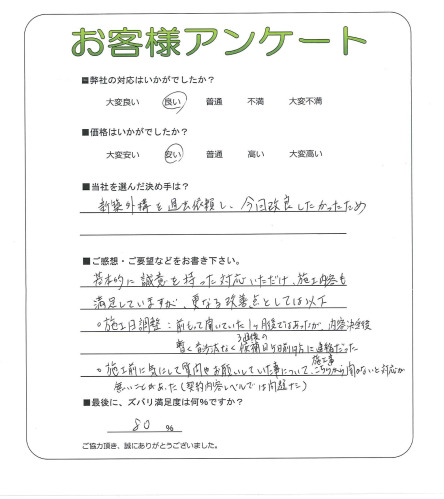 お客様アンケート
■弊社の対応はいかがでしたか？
大変良い 良い 普通 不満 大変不満
■価格はいかがでしたか？
大変安い 安い 普通 高い 大変高い
■当社を選んだ決め手は？
新築外構を過去依頼し、今回改良したかったため
■ご感想・ご要望などをお書き下さい。
基本的に誠意を持った対応いただけ、施工内容も
満足していますが、更なる改善点としては以下
○施工日調整：前もって聞いていた1ヶ月後ではあったが、内容決定後
暫く音沙汰なく 候補日 前時点に連絡だった
○施工前に気にして質問やお願いしていた事について、施工事 こちらから聞かないと対応が
無いことがあった（契約内容レベルでは問題なし）
■最後に、ズバリ満足度は何％ですか？
80 %
ご協力頂き、誠にありがとうございました。